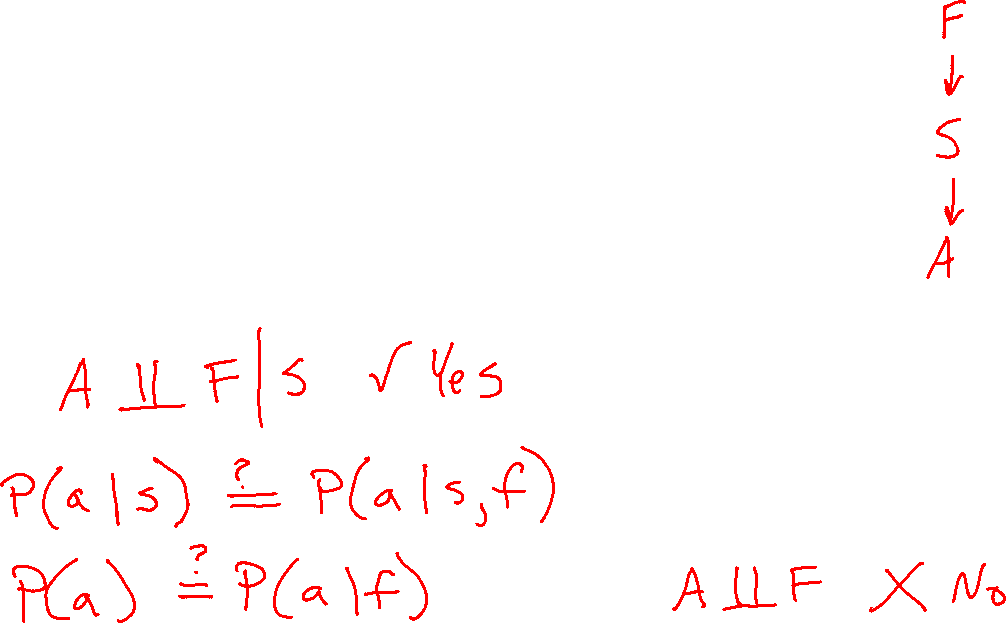 F
↓
S
↓
A
A ⫫ F | S ✓ Yes
P(a|s) ≟ P(a|s,f)
P(a) ≟ P(a|f)
A ⫫ F X No